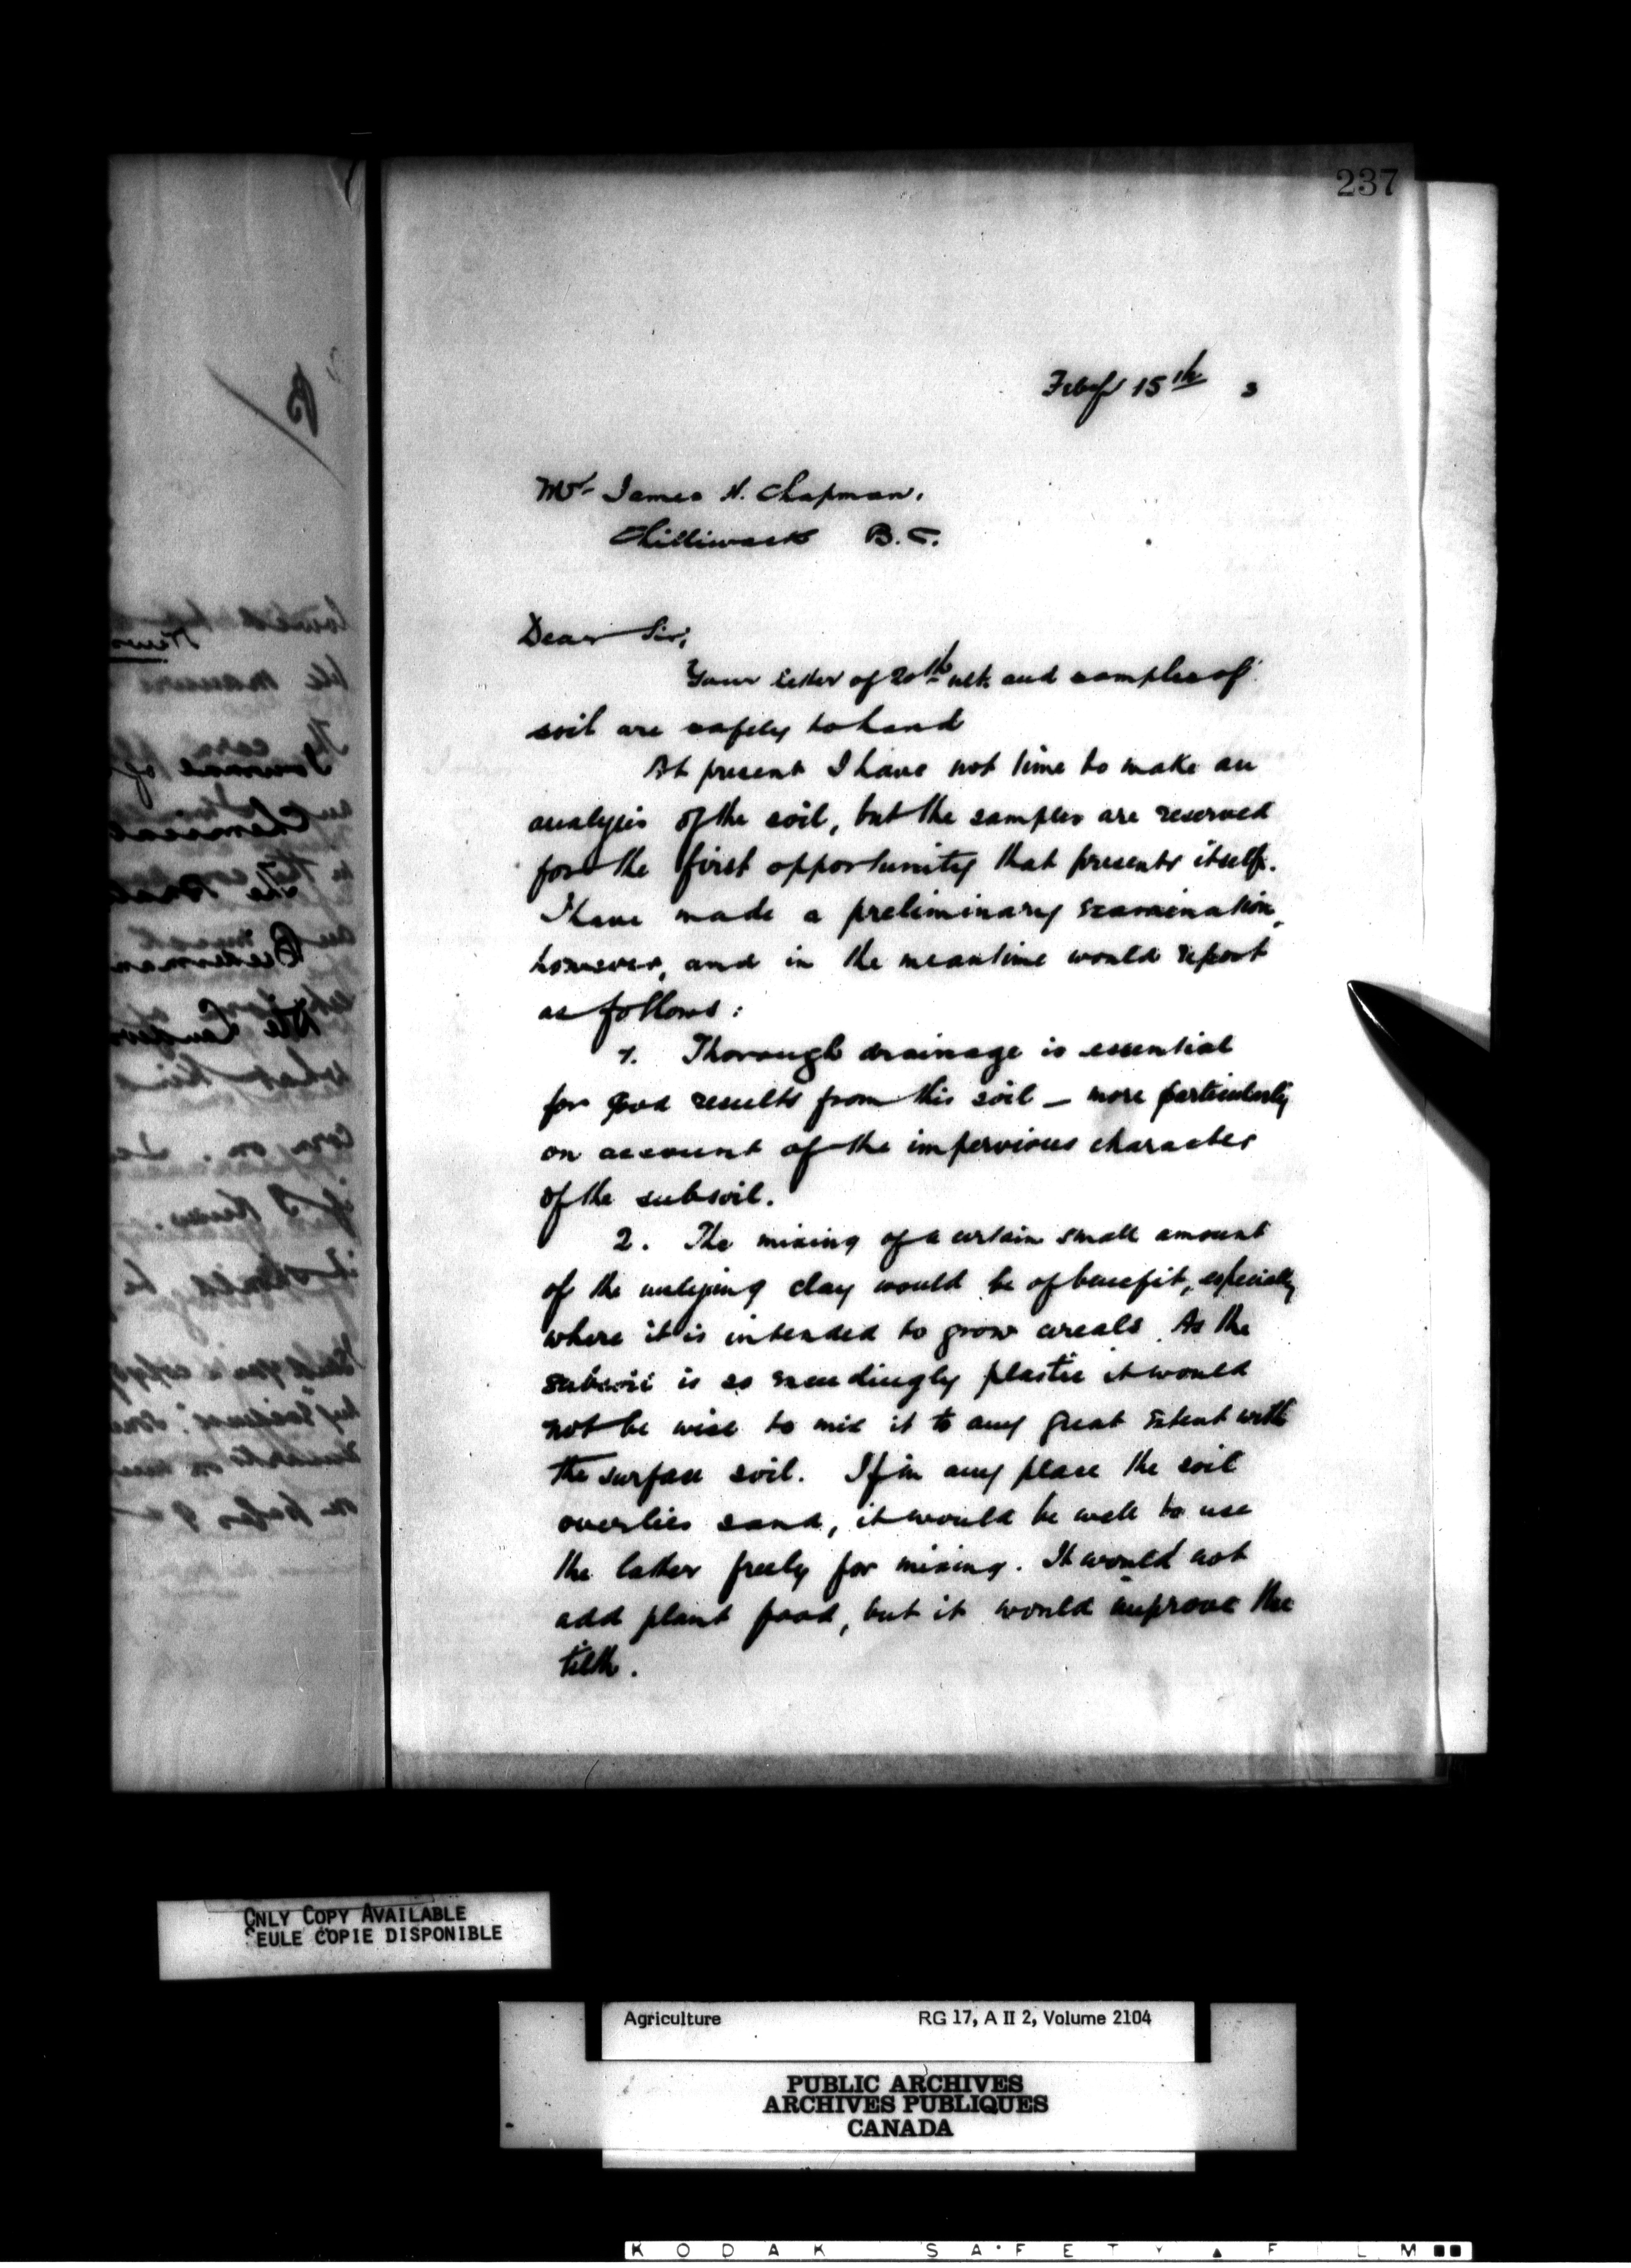 237
Feby 15th 3
Mr James N. Chapman,
Chilliwack B.C.
Dear Sir,
Your letter of 20th ult. and samples of
soil are safely to hand
At present I have not time to make an
analysis of the soil, but the samples are reserved
for the first opportunity that presents itself.
I have made a preliminary examination,
however, and in the meantime would report
as follows:
1. Thorough drainage is essential
for good results from this soil — more particularly
on account of the impervious character
of the subsoil.
2. The mixing of a certain small amount
of the underlying clay would be of benefit, especially
where it is intended to grow cereals. As the
subsoil is so exceedingly plastic it would
not be wise to mix it to any great extent with
the surface soil. If in any place the soil
overlies sand, it would be well to use
the latter freely for mixing. It would not
add plant food, but it would improve the
tilth.
ONLY COPY AVAILABLE
SEULE COPIE DISPONIBLE
Agriculture RG 17, A II 2, Volume 2104
PUBLIC ARCHIVES
ARCHIVES PUBLIQUES
CANADA
KODAK SAFETY FILM